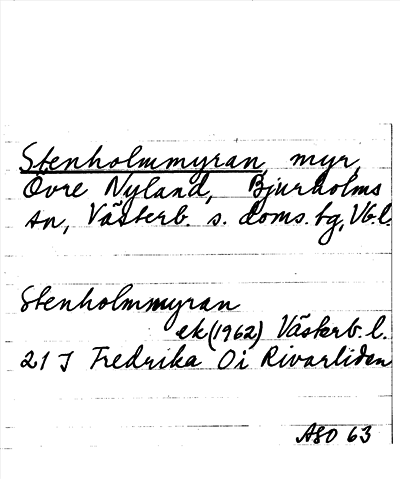 Stenholmmyran, myr,
Övre Nyland, Bjurholms
sn, Västerb. s. doms. tg, Vb.l.
Stenholmmyran
ek (1962) Västerb. l.
21 J Fredrika 0i Rivarliden
ASO 63